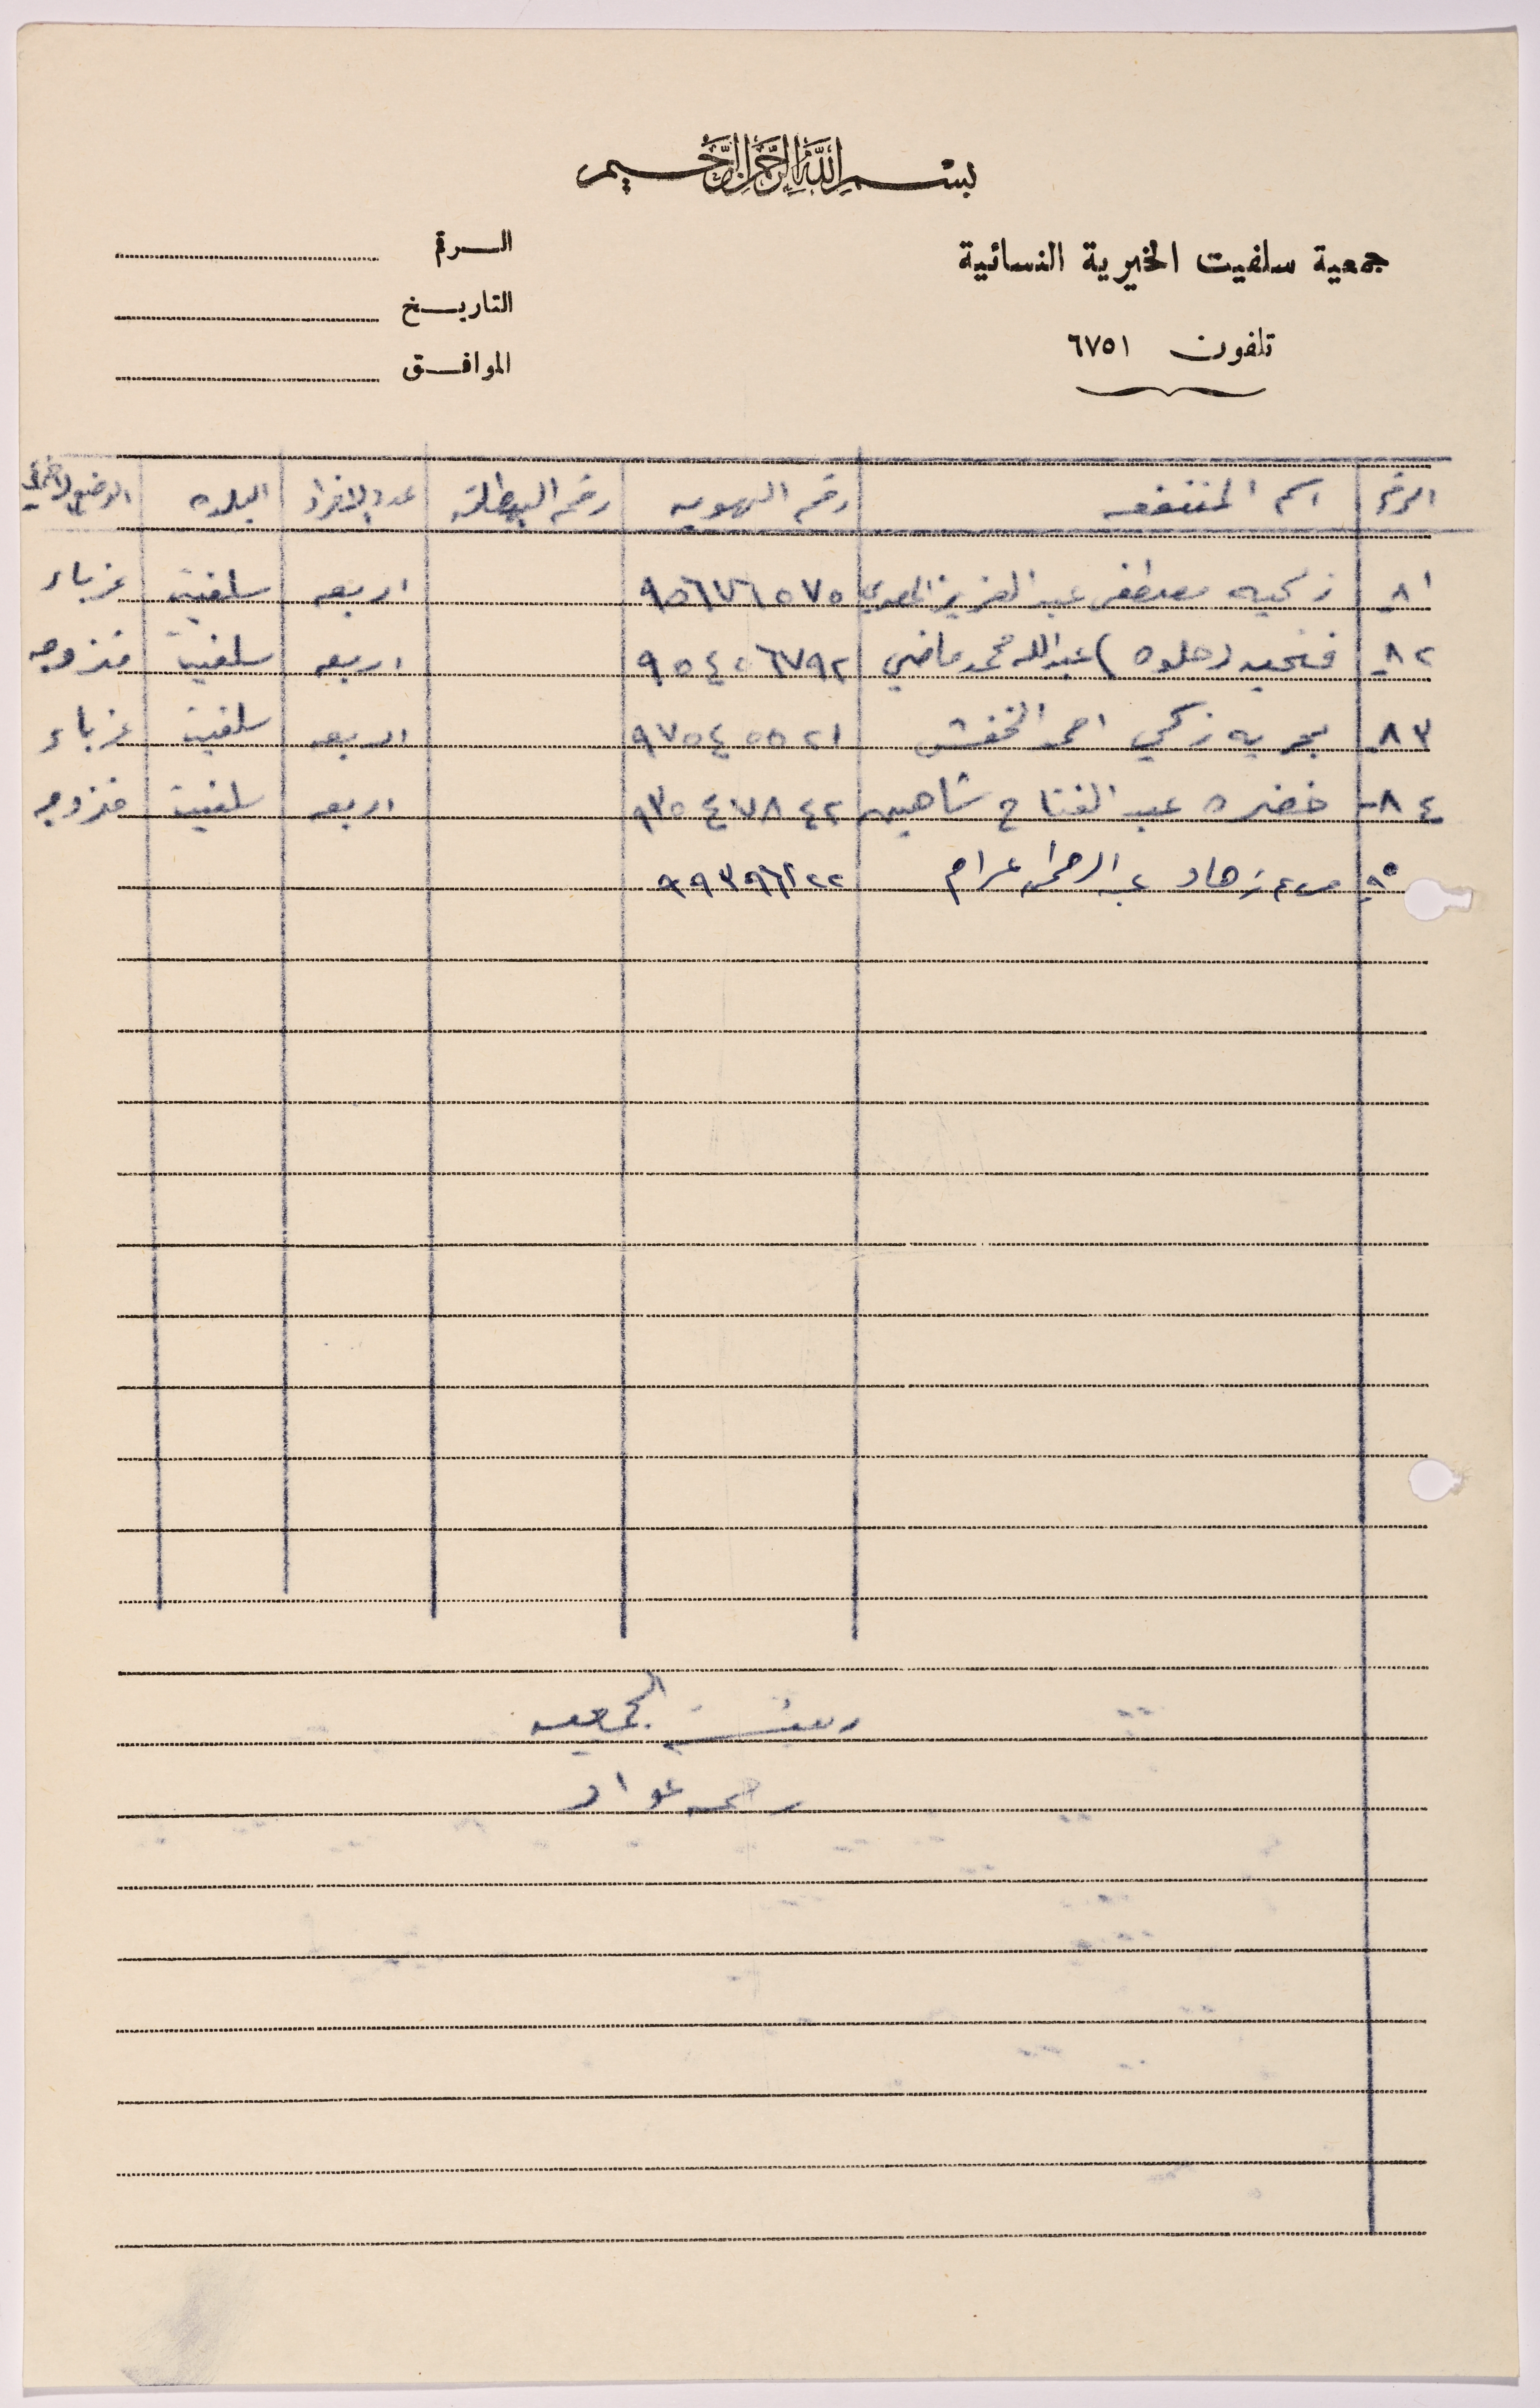 بسم الله الرحمن الرحيم
جمعية سلفيت الخيرية النسائية
تلفون ٦٧٥١
الرقم
التاريخ
الموافق
الرقم اسم المنتفعه رقم الهويه رقم البطاقة عدد الافراد البلده الوضع
٨١ زكيه مصطفى عبد العزيز ٩٥٦٧٦٥٧٥ اربعه سلفيت عزباء
٨٢ فتحيه (حلوه) عبدالله محمد ماضي ٩٥٤٠٦٧٩٢ اربعه سلفيت متزوجه
٨٣ بحريه زكي احمد الخفش ٩٧٥٤٥٥٢١ اربعه سلفيت عزباء
٨٤- خضره عبد الفتاح شاهين ٩٣٥٤٧٨٤٢ اربعه سلفيت متزوجه
عبد الرحمن عزام ٩٩٣٩٦١٢٢
رئيسة الجمعيه
رحمه عواد